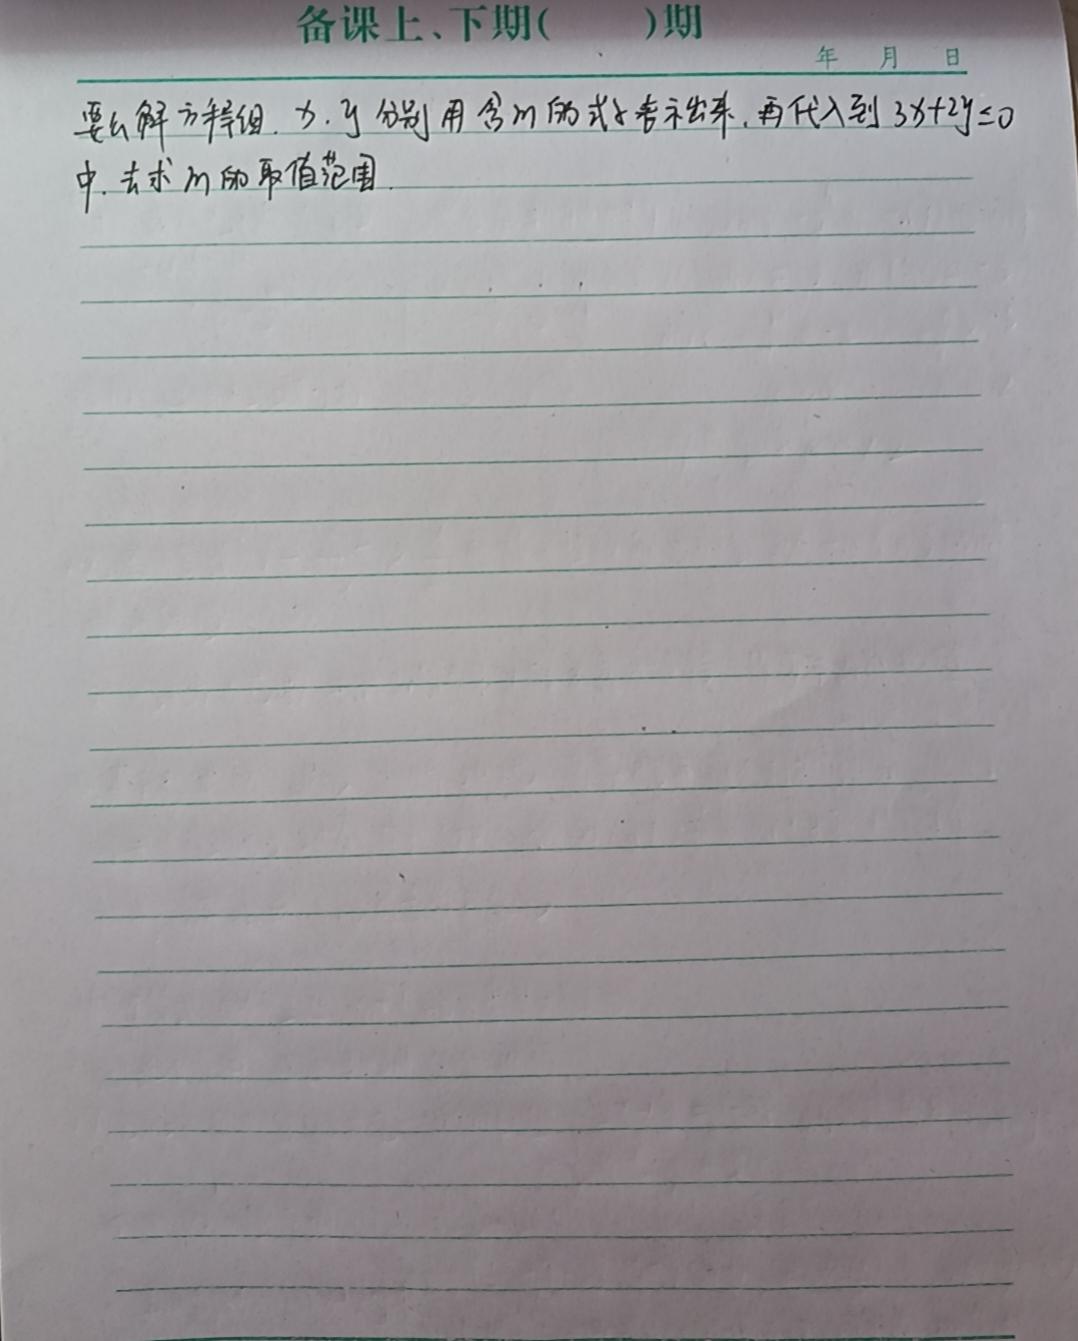 备课上、下期(　　)期
年　月　日
要么解方程组.x.y分别用含m的式子表示出来.再代入到3x+2y≤0
中.去求m的取值范围.